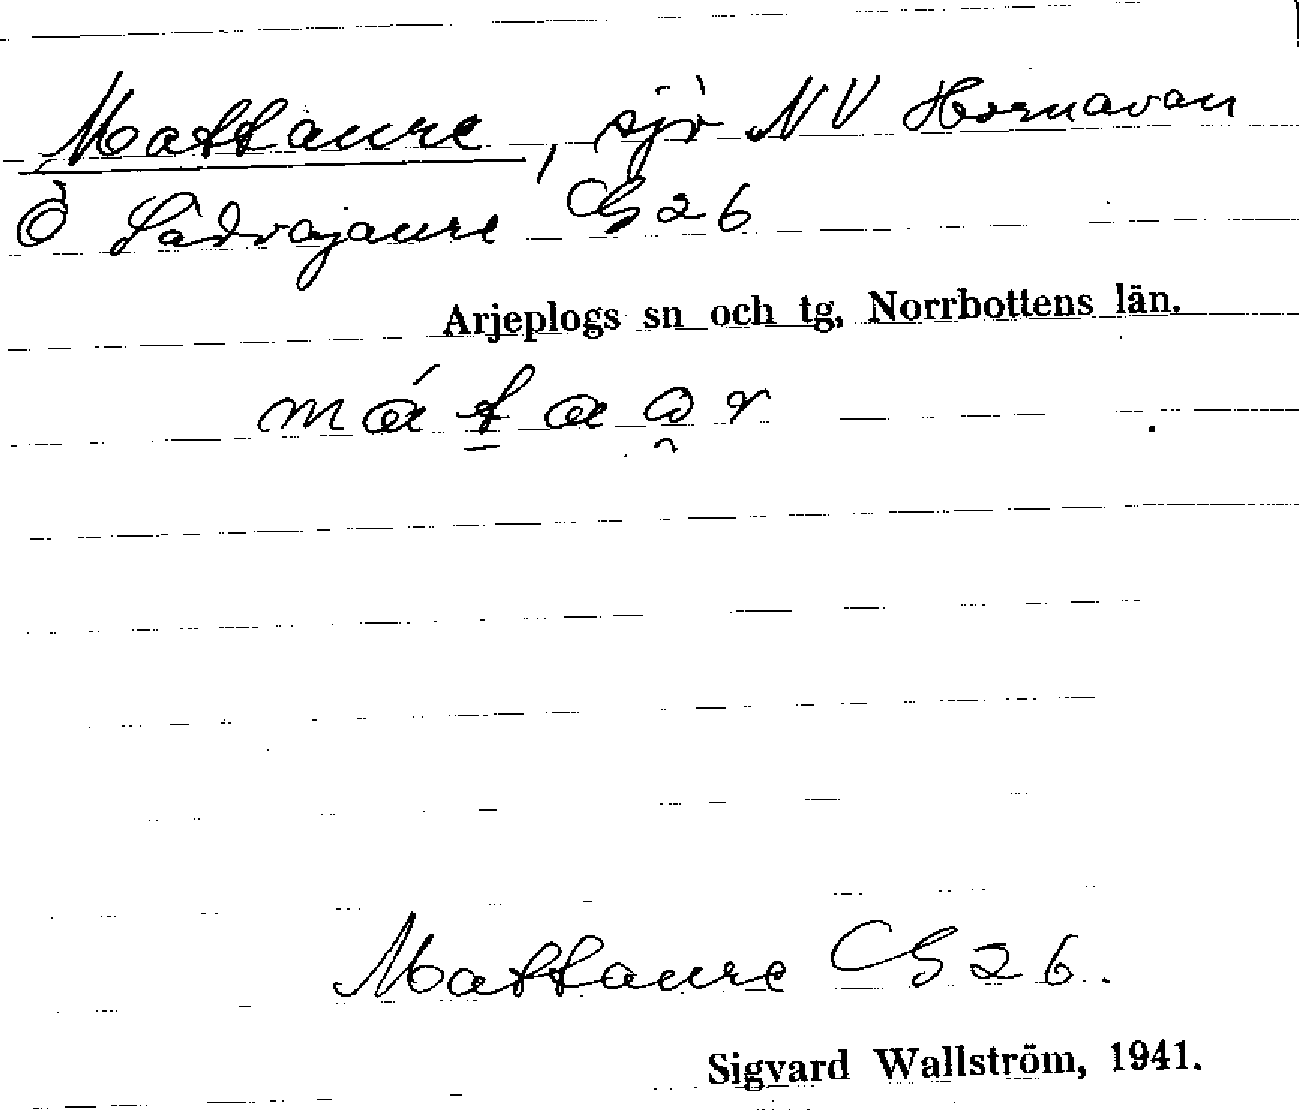 Mattaure, sjö NV Hornavan
Ö Sädvajaure CG 26
Arjeplogs sn och tg, Norrbottens län.
Mattaure CG 26.
Sigvard Wallström, 1941.